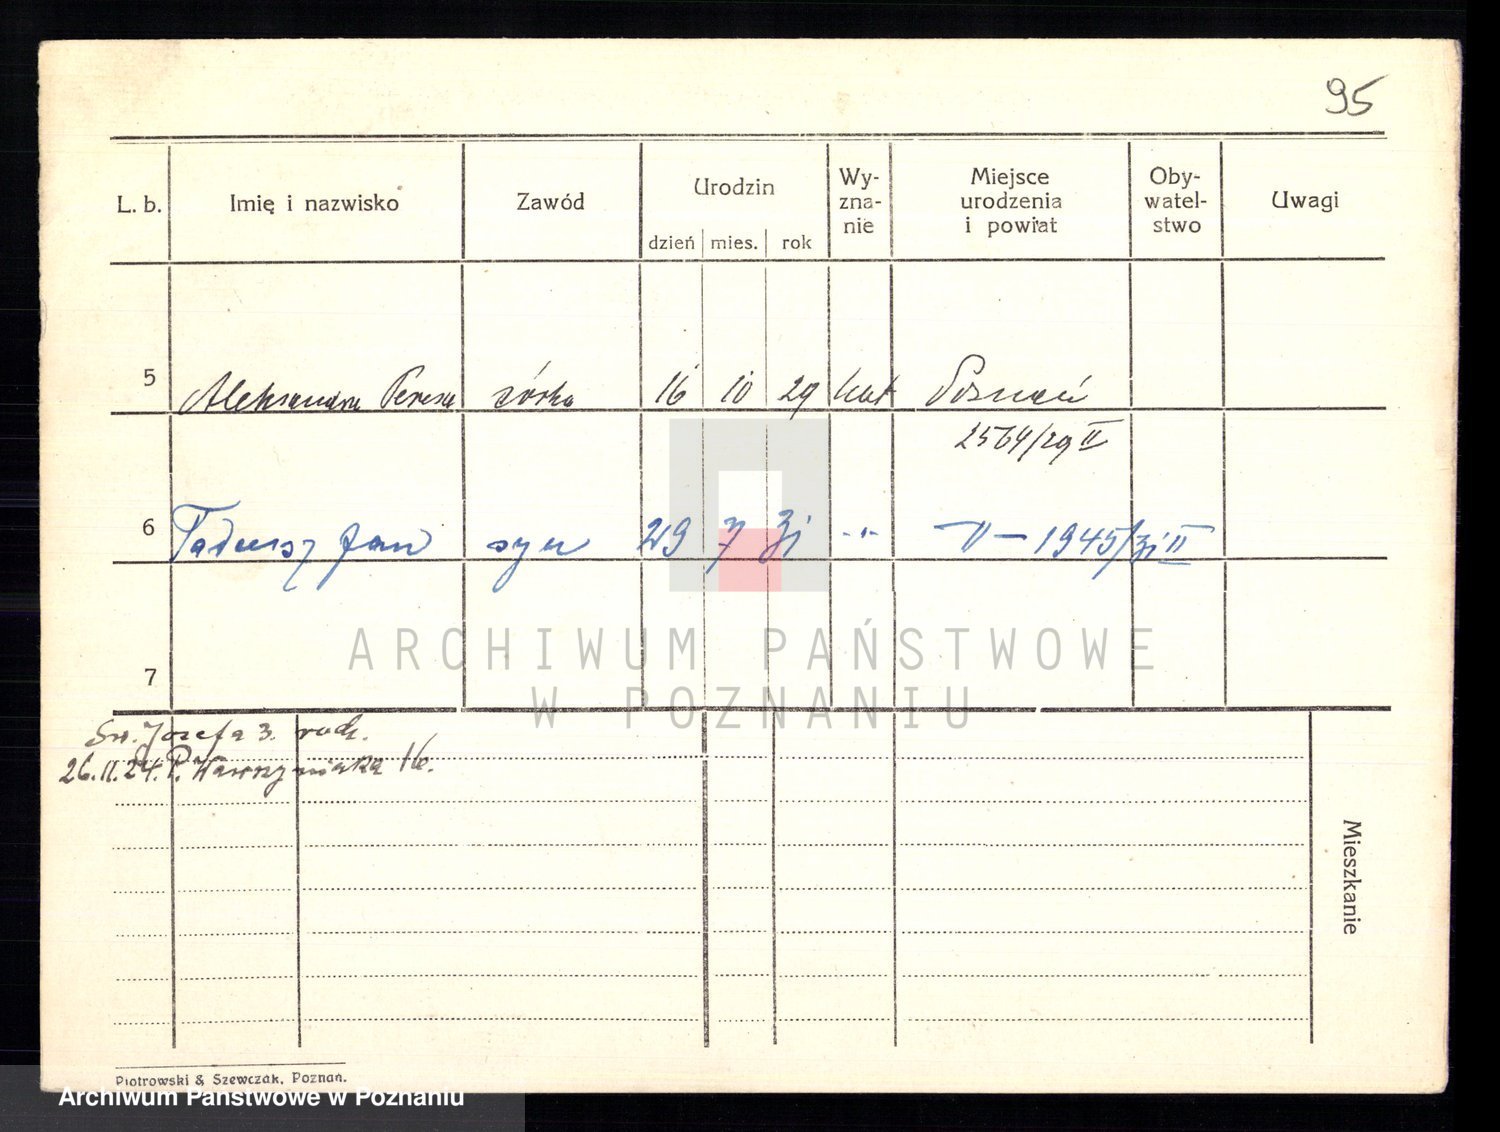 95
L. b. Imię i nazwisko Zawód Urodzin Wy- Miejsce Oby- Uwagi
zna- urodzenia watel-
nie i powiat stwo
dzień mies. rok
5 Aleksandra Teresa córka 16 10 29 kat Poznań
2564/29 II
6 Tadeusz Jan syn 29 7 31 -"- -"- 1945/31 II
7
ARCHIWUM PAŃSTWOWE
W POZNANIU
Św. Józefa 3. rodz.
26.11.24. P. Wawrzyniaka 16.
Mieszkanie
Piotrowski & Szewczak, Poznań.
Archiwum Państwowe w Poznaniu